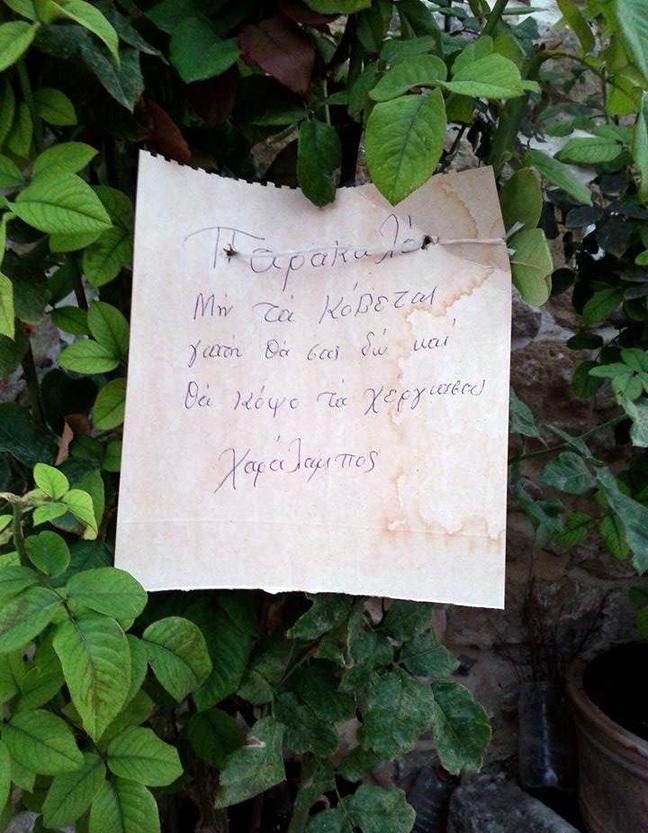 Παρακαλό
Μήν τά κόβεται
γιατή θά σας δώ καί
θά κόψο τά χεργιασας
Χαράλαμπος